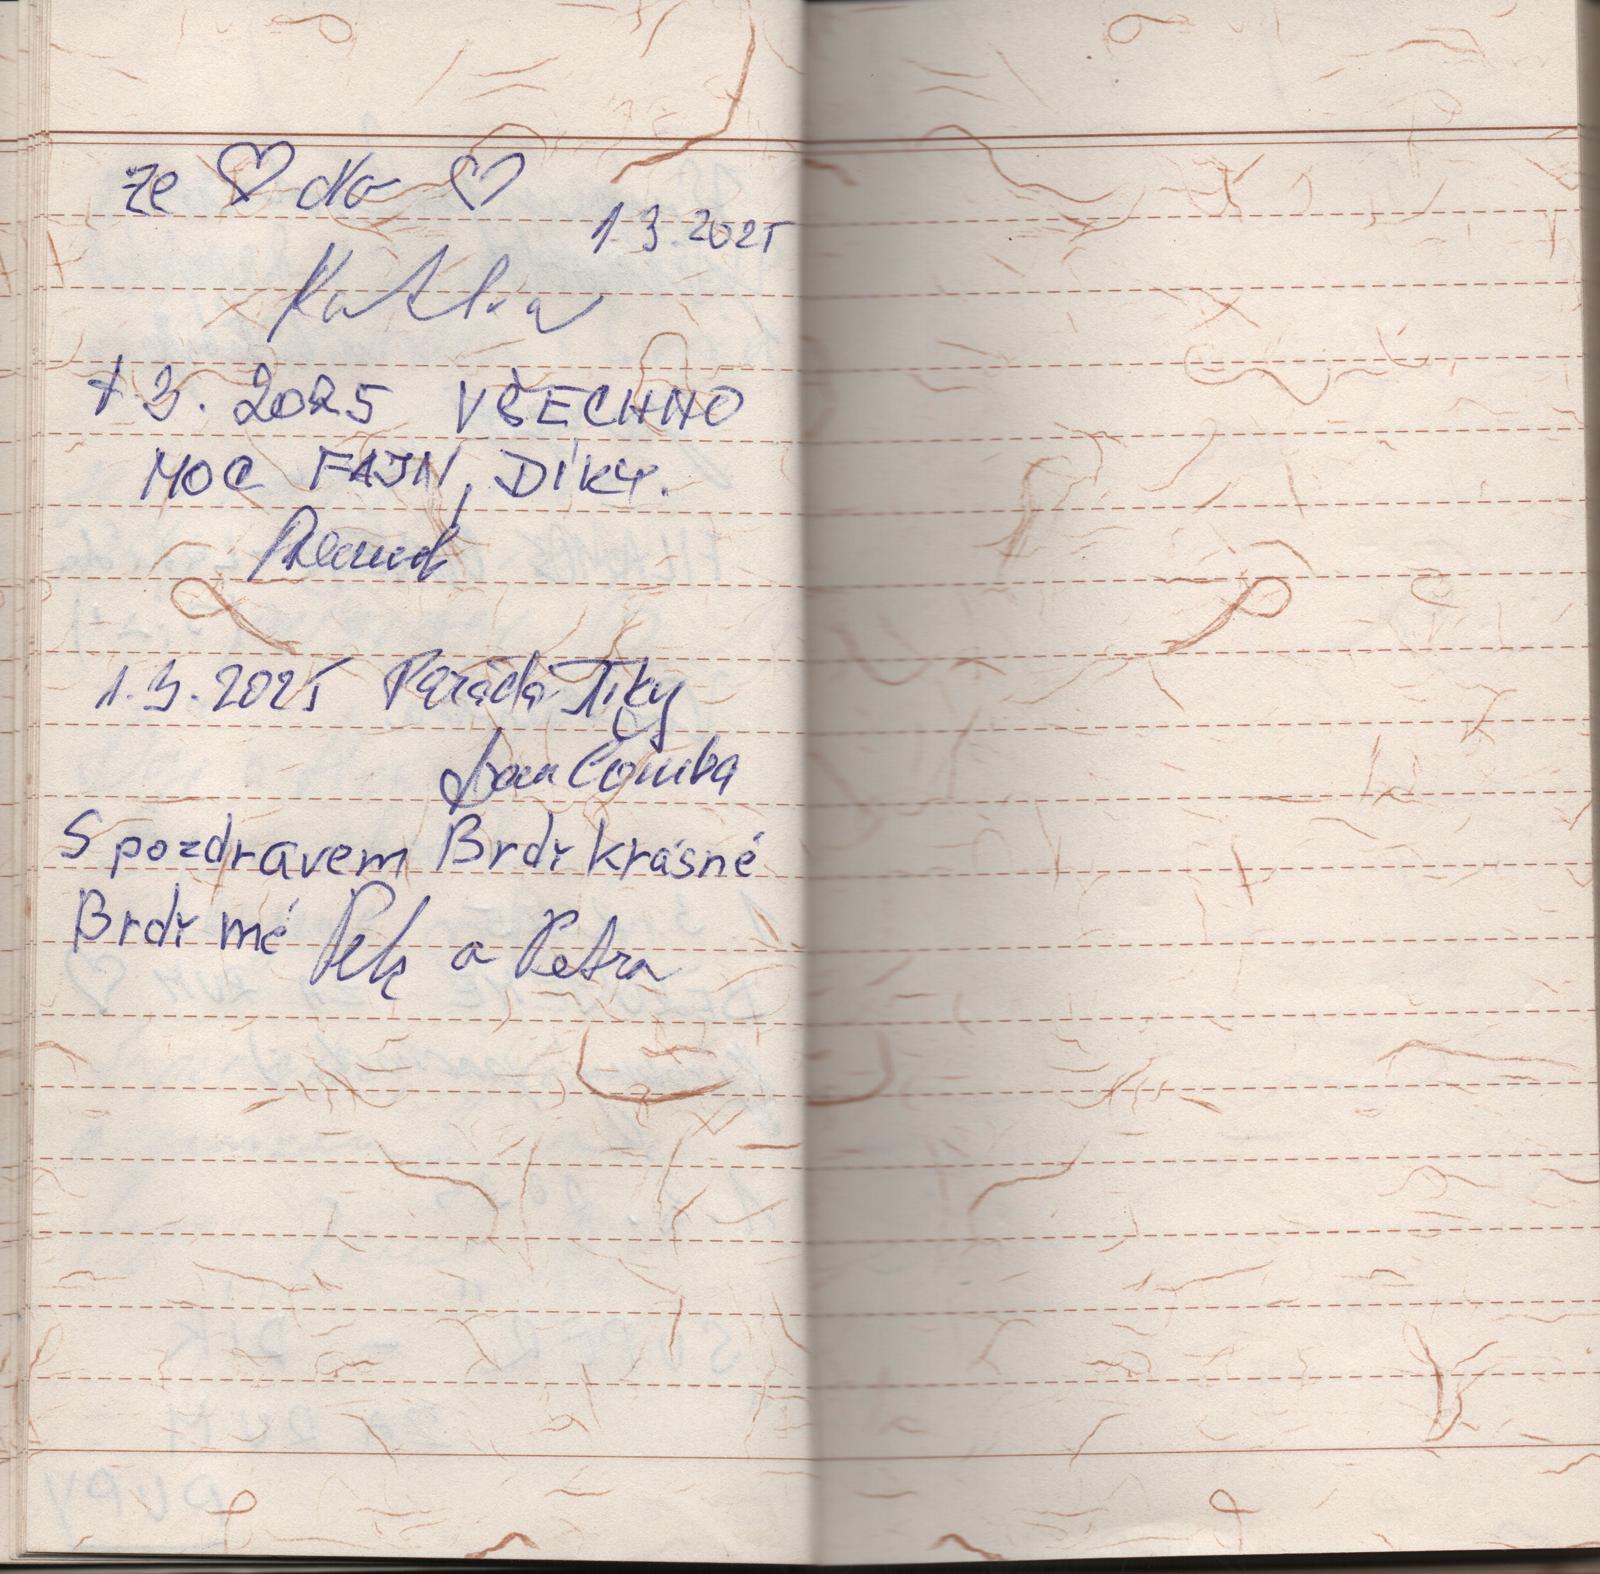 ze ♡ do ♡
1.3.2025
Katka
1.3. 2025 VŠECHNO
MOC FAJN, DÍKY.
1.3.2025 Paráda Tiky
Čomba
S pozdravem Brdř krásné
Brdř mé Pek a Petra